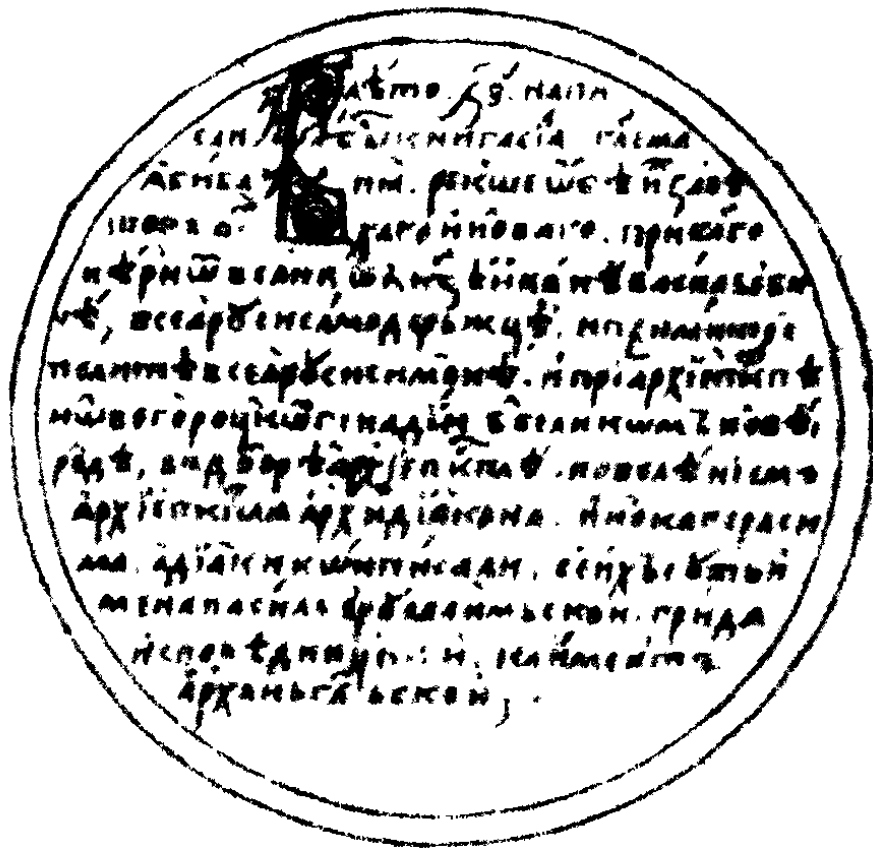 лѣто написа
книга сїа гл҃ема
рекше ѡбѣи завѣ
таго и новаго. при бл҃го
вѣрнѡ велико кн҃ѕѣ иванѣ василъеви
чѣ, всеа рꙋси самодеръжцѣ. и при митро
политѣ всеа рꙋсїи симонѣ. и при архїепкпѣ
новогороцкѡ генадїи в великѡм новѣ
градѣ, въ дворѣ архїепкплѣ. повелѣнїемъ
архїепкпла архидїакона. инока герасим
ма. а дїаки кѡи писали. се ихъ сꙋть и
мена василъ ерꙋсалимъскои. гридѧ
исповѣдницкои. климентъ
арханьгельскои,